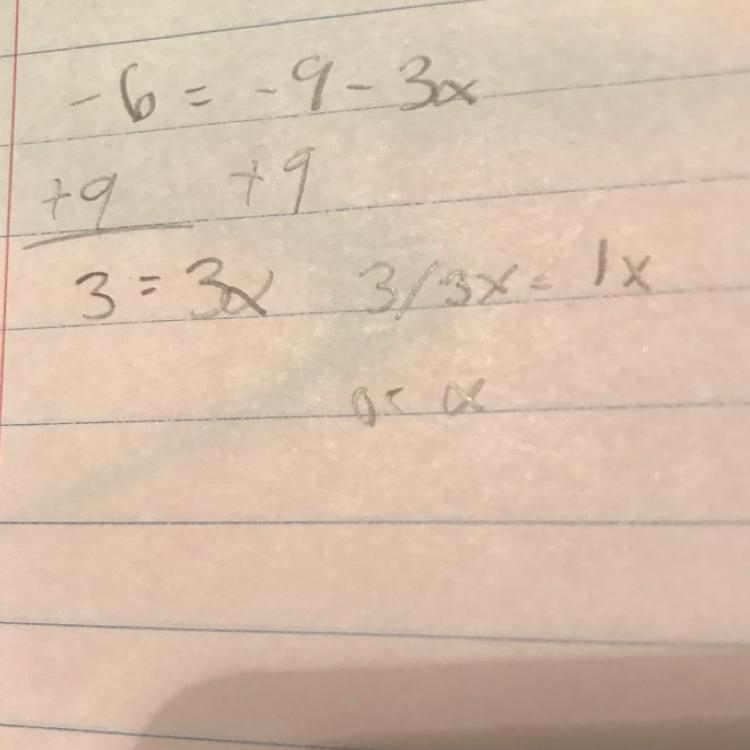 -6 = -9 - 3x
+9 +9
3 = 3x 3/3x = 1x